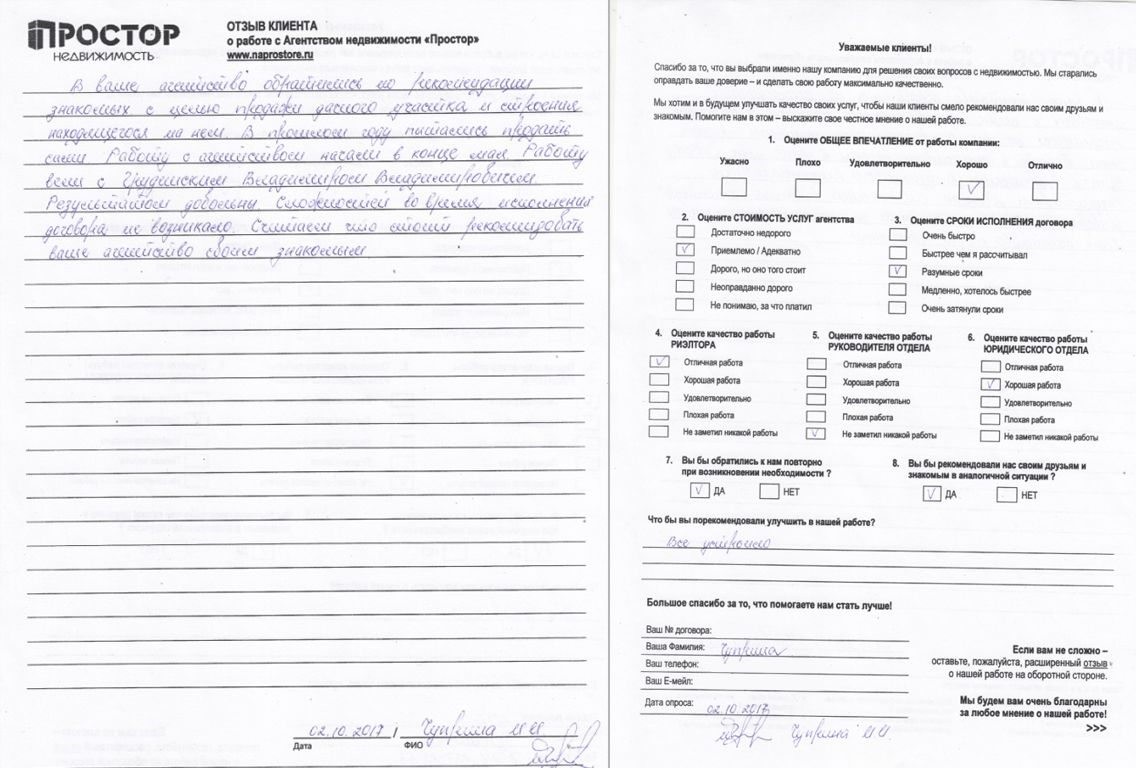 ПРОСТОР
НЕДВИЖИМОСТЬ
ОТЗЫВ КЛИЕНТА
о работе с Агентством недвижимости «Простор»
www.naprostore.ru
В ваше агентство обратились по рекомендации
знакомых с целью продажи дачного участка и строения
находящегося на нем. В прошлом году пытались продать
сами. Работу с агентством начали в конце мая. Работу
вели с Грудинским Владимиром Владимировичем.
Результатом довольны. Сложностей во время исполнения
договора не возникало. Считаем что стоит рекомендовать
ваше агентство своим знакомым.
02.10.2017 / Чуприна И И
Дата ФИО
Уважаемые клиенты!
Спасибо за то, что вы выбрали именно нашу компанию для решения своих вопросов с недвижимостью. Мы старались
оправдать ваше доверие – и сделать свою работу максимально качественно.
Мы хотим и в будущем улучшать качество своих услуг, чтобы наши клиенты смело рекомендовали нас своим друзьям и
знакомым. Помогите нам в этом – выскажите свое честное мнение о нашей работе.
1. Оцените ОБЩЕЕ ВПЕЧАТЛЕНИЕ от работы компании:
Ужасно Плохо Удовлетворительно Хорошо Отлично
2. Оцените СТОИМОСТЬ УСЛУГ агентства
Достаточно недорого
Приемлемо / Адекватно
Дорого, но оно того стоит
Неоправданно дорого
Не понимаю, за что платил
3. Оцените СРОКИ ИСПОЛНЕНИЯ договора
Очень быстро
Быстрее чем я рассчитывал
Разумные сроки
Медленно, хотелось быстрее
Очень затянули сроки
4. Оцените качество работы
РИЭЛТОРА
Отличная работа
Хорошая работа
Удовлетворительно
Плохая работа
Не заметил никакой работы
5. Оцените качество работы
РУКОВОДИТЕЛЯ ОТДЕЛА
Отличная работа
Хорошая работа
Удовлетворительно
Плохая работа
Не заметил никакой работы
6. Оцените качество работы
ЮРИДИЧЕСКОГО ОТДЕЛА
Отличная работа
Хорошая работа
Удовлетворительно
Плохая работа
Не заметил никакой работы
7. Вы бы обратились к нам повторно
при возникновении необходимости ?
ДА НЕТ
8. Вы бы рекомендовали нас своим друзьям и
знакомым в аналогичной ситуации ?
ДА НЕТ
Что бы вы порекомендовали улучшить в нашей работе?
Все устроило
Большое спасибо за то, что помогаете нам стать лучше!
Ваш № договора:
Ваша Фамилия: Чуприна
Ваш телефон:
Ваш Е-мейл:
Дата опроса: 02.10.2017
Чуприна И И.
Если вам не сложно –
оставьте, пожалуйста, расширенный отзыв
о нашей работе на оборотной стороне.
Мы будем вам очень благодарны
за любое мнение о нашей работе!
>>>